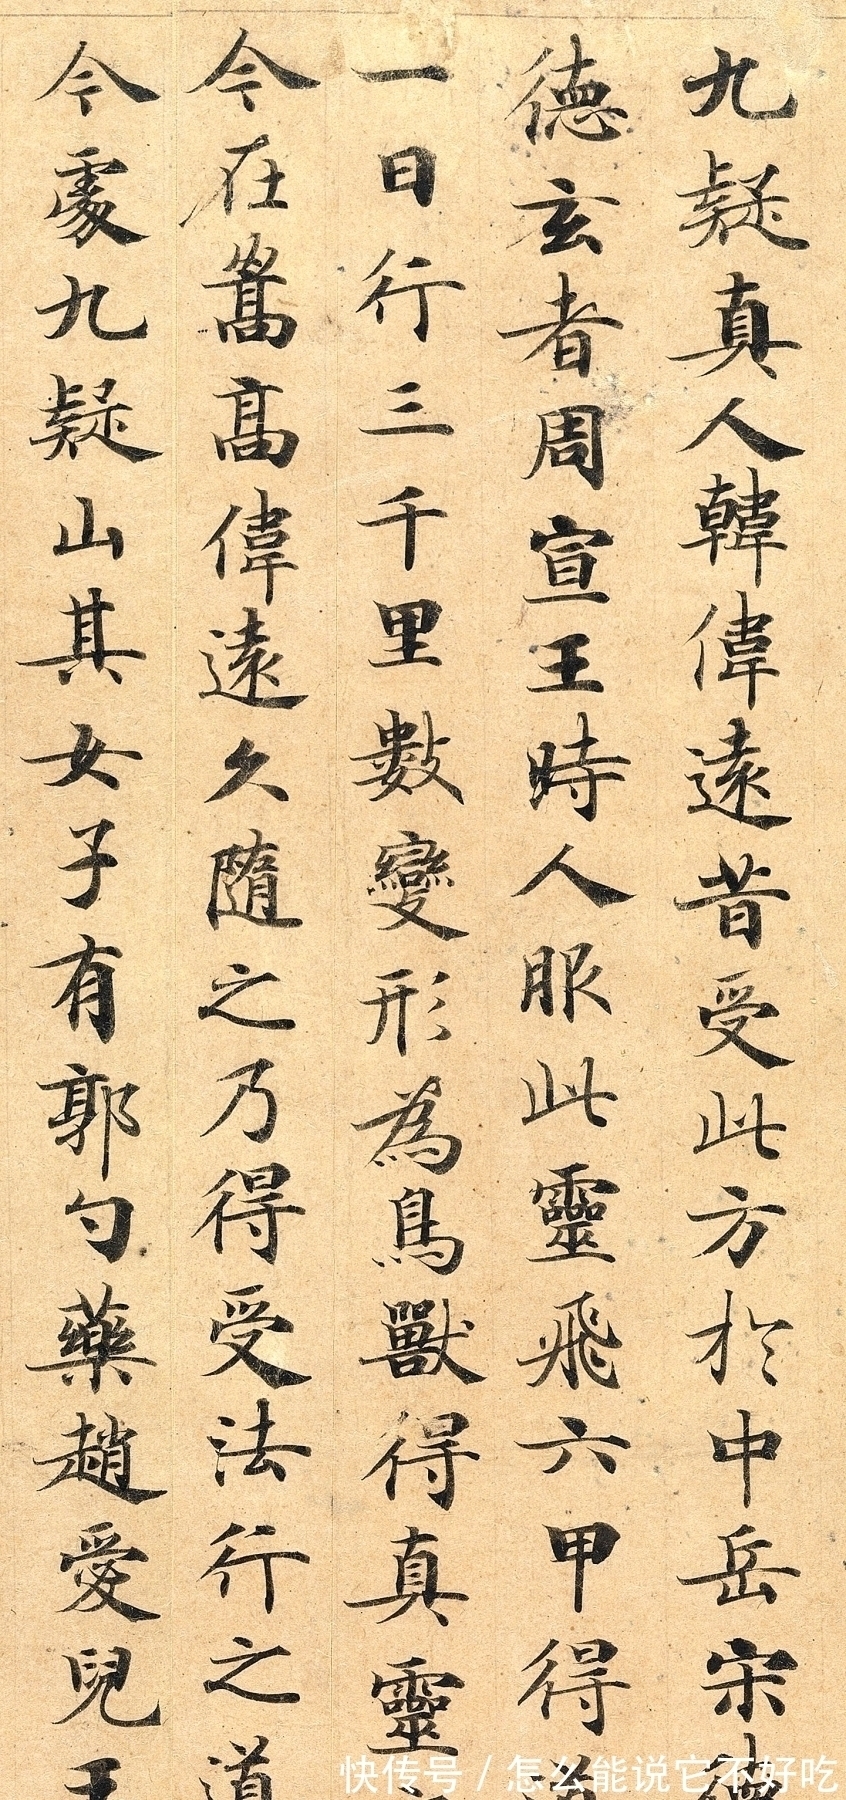 九疑真人韓偉遠昔受此方於中岳宋德
德玄者周宣王時人服此靈飛六甲得道
一日行三千里數變形為鳥獸得真靈
今在嵩高偉遠久隨之乃得受法行之道
今處九疑山其女子有郭勺藥趙愛兒王
快传号 / 怎么能说它不好吃